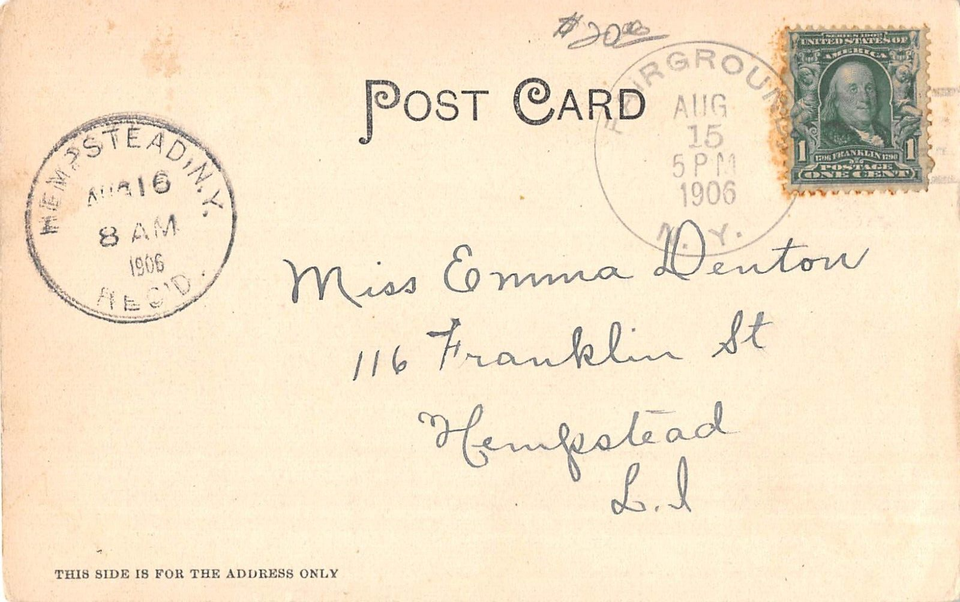 $20.00
POST CARD
FAIRGROUNDS
AUG
15
5 PM
1906
N.Y.
SERIES 1902
UNITED STATES OF
AMERICA
1 1706 FRANKLIN 1790 1
POSTAGE
ONE CENT
HEMPSTEAD, N.Y.
AUG 16
8 AM
1906
REC'D.
Miss Emma Denton
116 Franklin St
Hempstead
L.I
THIS SIDE IS FOR THE ADDRESS ONLY